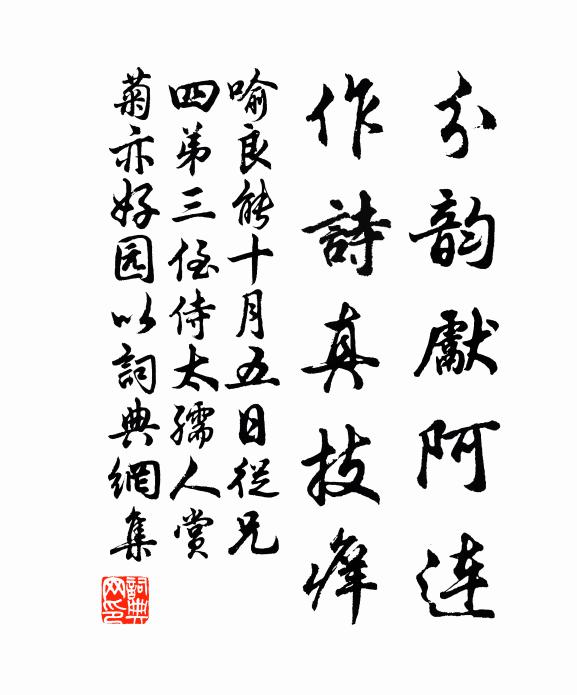 分韵獻阿連
作詩真技癢
喻良能十月五日從兄
四弟三侄侍太孺人賞
菊亦好园以詞典網集
詞典网印